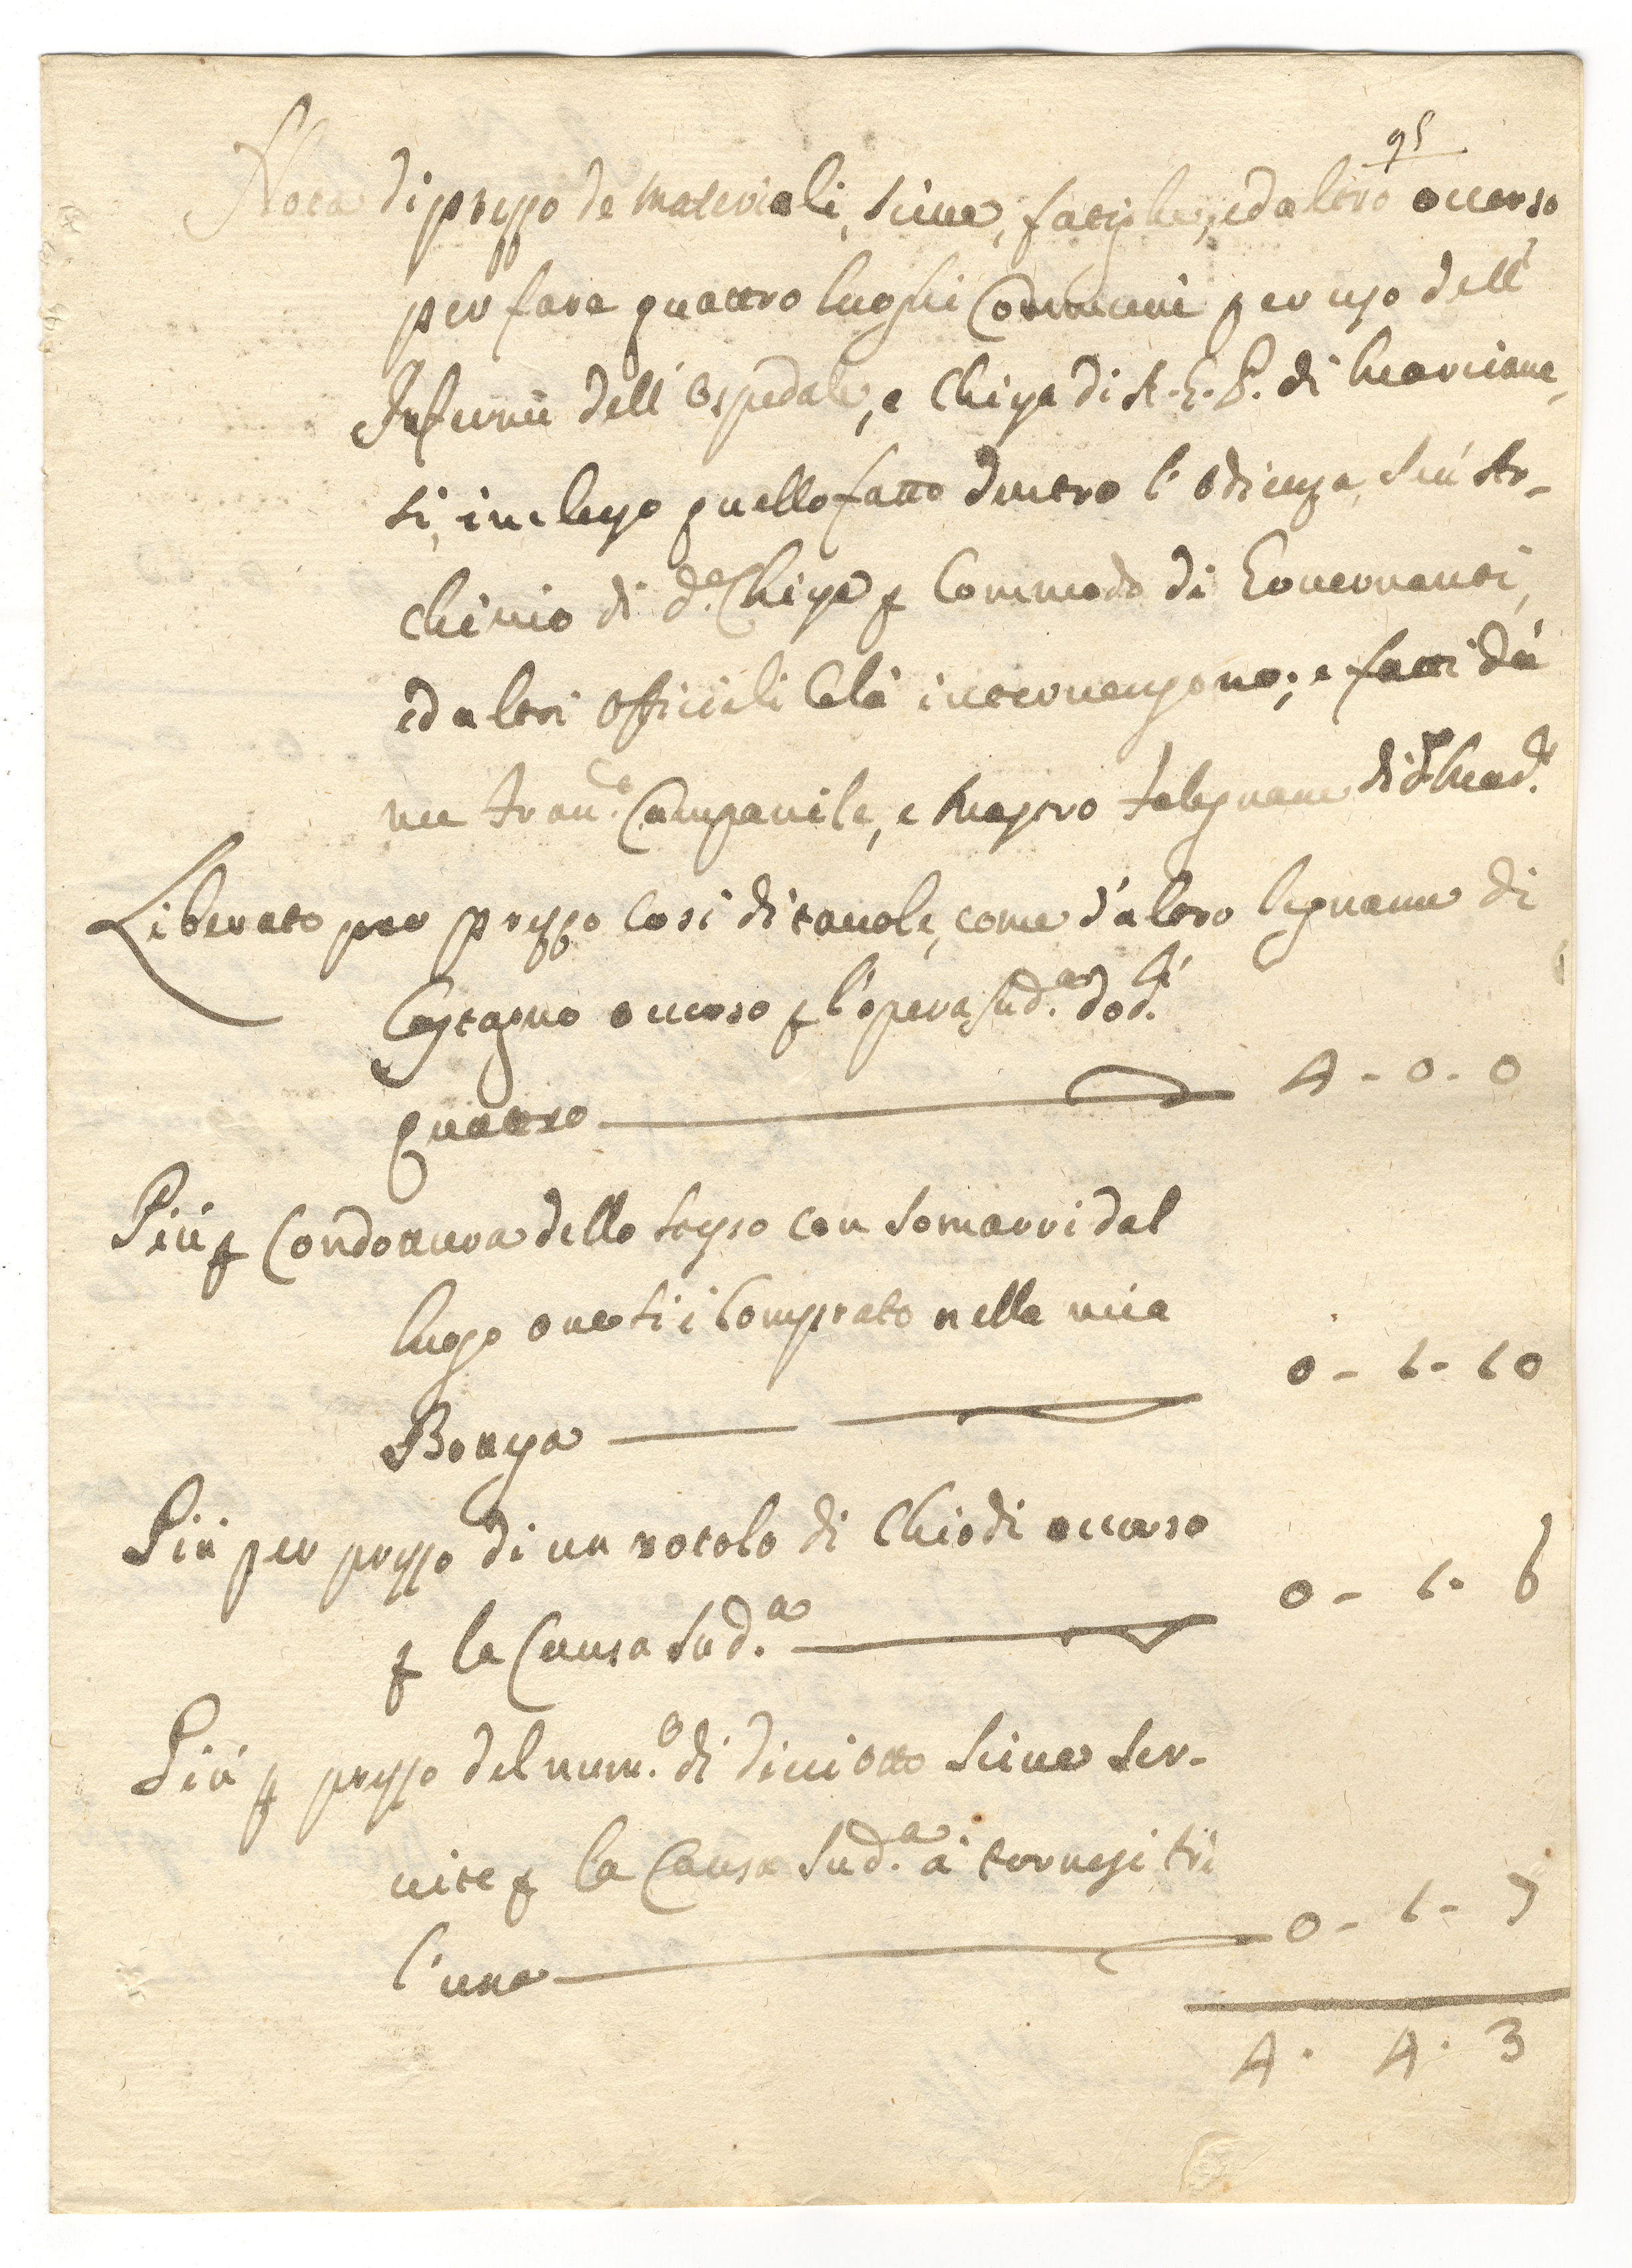 95
Nota di prezzo de materiali, sciue, fatighe, ed altro occorso
per fare quattro luoghi Communi per uso dell'
Infermi dell'Ospedale, e Chiesa di A. G. P. di Marciane,
si, incluso quello fatto dentro l'Odienza, seu Ar-
chivio di d.a Chiesa p Commodo di Governanti,
ed altri Officiali Celà intervengono; e fatti da
me Fran.co Campanile, e Mastro falegname di d.o
Liberato per prezzo così di tavole, come d'altro legname di
Castagno occorso p l'opera sud.a dod.ti
quattro 4 - 0 - 0
Più p Condottura dello stesso con somarri dal
luogo ove si è Comprato nella mia
0 - 1 - 10
Più per prezzo di un rotolo di Chiodi occorso
p la Causa sud.a 0 - 1 - 6
Più p prezzo del num.o di diciotto sciue ser-
vite p la Causa sud.a à tornesi trè
l'una 0 - 1 - 7
4 . 4 . 3